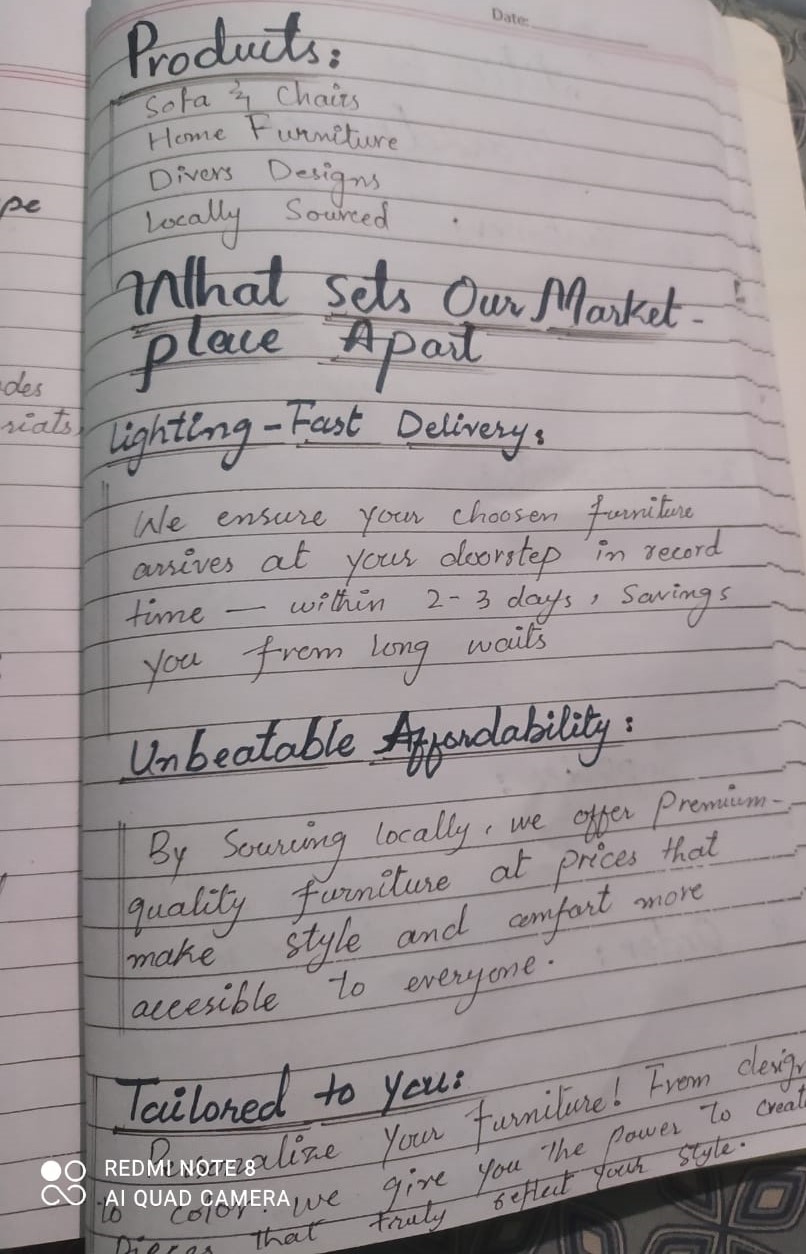 Date:
Products:
Sofa & Chairs
Home Furniture
Divers Designs
Locally Sourced
What sets Our Market-
place Apart
Lighting-Fast Delivery:
We ensure your choosen furniture
arrives at your doorstep in record
time — within 2-3 days, Savings
you from long waits
Unbeatable Affordability:
By Sourcing locally, we offer Premium-
quality furniture at prices that
make style and comfort more
accesible to everyone.
Tailored to you:
Personalize your furniture! From design
to color. we give you the power to creat
Pieces that truly reflect your style.
pe
des
riats
REDMI NOTE 8
AI QUAD CAMERA